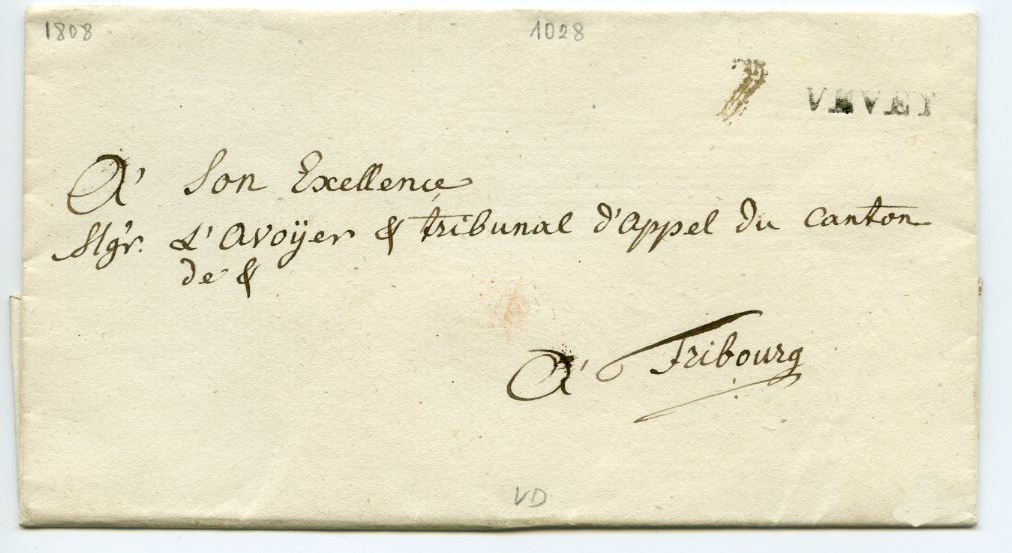 1808 1028
VEVEY
A' Son Exellence
Mgr. L'Avoÿer & tribunal d'Appel du Canton
de &
A' Fribourg
VD